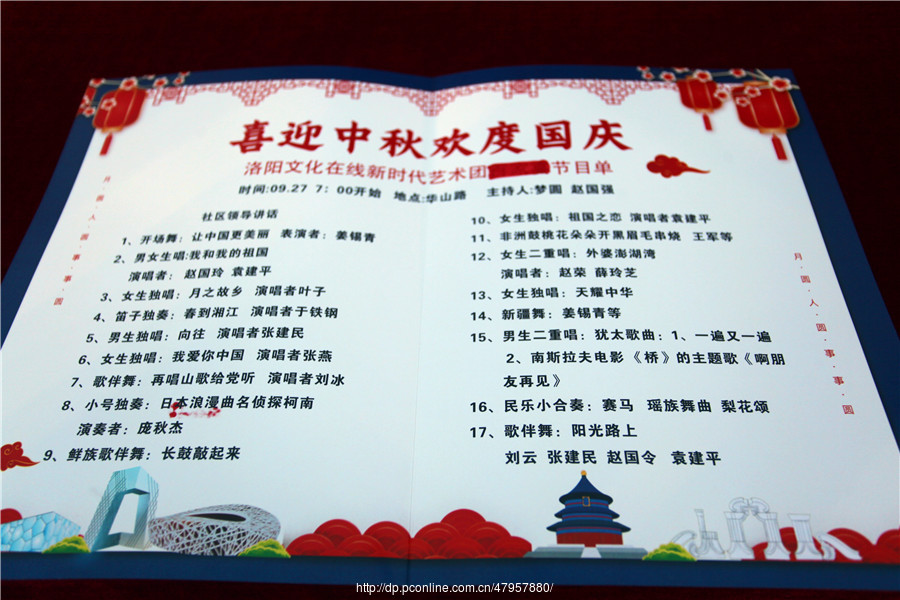 喜迎中秋欢度国庆
洛阳文化在线新时代艺术团 节目单
时间:09.27 7：00开始 地点:华山路 主持人:梦圆 赵国强
月·圆·人·圆·事·事·圆
社区领导讲话
1、开场舞：让中国更美丽 表演者：姜锡青
2、男女生唱:我和我的祖国
演唱者：赵国玲 袁建平
3、女生独唱：月之故乡 演唱者叶子
4、笛子独奏：春到湘江 演唱者于铁钢
5、男生独唱：向往 演唱者张建民
6、女生独唱：我爱你中国 演唱者张燕
7、歌伴舞：再唱山歌给党听 演唱者刘冰
8、小号独奏：日本浪漫曲名侦探柯南
演奏者：庞秋杰
9、鲜族歌伴舞：长鼓敲起来
10、女生独唱：祖国之恋 演唱者袁建平
11、非洲鼓桃花朵朵开黑眉毛串烧 王军等
12、女生二重唱：外婆澎湖湾
演唱者：赵荣 薛玲芝
13、女生独唱：天耀中华
14、新疆舞：姜锡青等
15、男生二重唱：犹太歌曲：1、一遍又一遍
2、南斯拉夫电影《桥》的主题歌《啊朋
友再见》
16、民乐小合奏：赛马 瑶族舞曲 梨花颂
17、歌伴舞：阳光路上
刘云 张建民 赵国令 袁建平
月·圆·人·圆·事·事·圆
http://dp.pconline.com.cn/47957880/